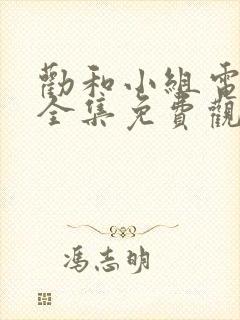 勸和小組電
全集免費觀
馮志明